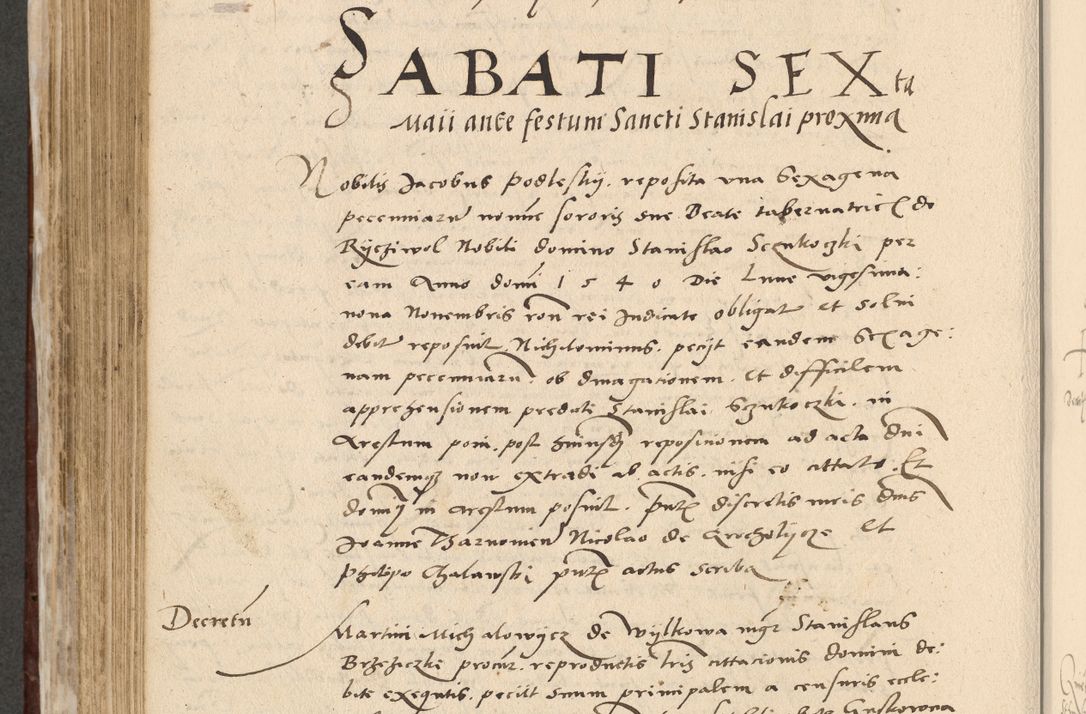 SABATI SEXta
Maii ante festum Sancti Stanislai proxima
Nobilis Jacobus Podleskij. reposita una Sexagena
pecenniarũ nomĩe sororis sue Beate tabernatricis de
Ryczivol Nobili domino Stanislao Sczukoczki per
eam Anno domĩ 1 5 4 0 Die Lune vigesima:
nona Novembris rõn rei Judicate obligat et solui
debet reposuit. Nichilominus. peciit eandem Sexage:
nam pecenniarũ. ob divagationem. et difficilem
apprehensionem predicti Stanislai Sczukoczki. in
Arestum poni. post huiusmodi repositionem ad acta dñi
eandemq3 non extradi ab actis. nisi eo cittato. Et
dominus in arestum posuit. Pñtibus discretis viris dñis
Joanne Tharnowien Nicolao de Grocholijcze Et
Philippo Chalawski pñtis actus scriba
Decretũ
Martini Michalowijcz de Wylkowa mgr Stanislaus
Brzeziczki procur. reproductis lris cittationis domini de:
bite exequtis. peciit suum principalem a censuris eccle: